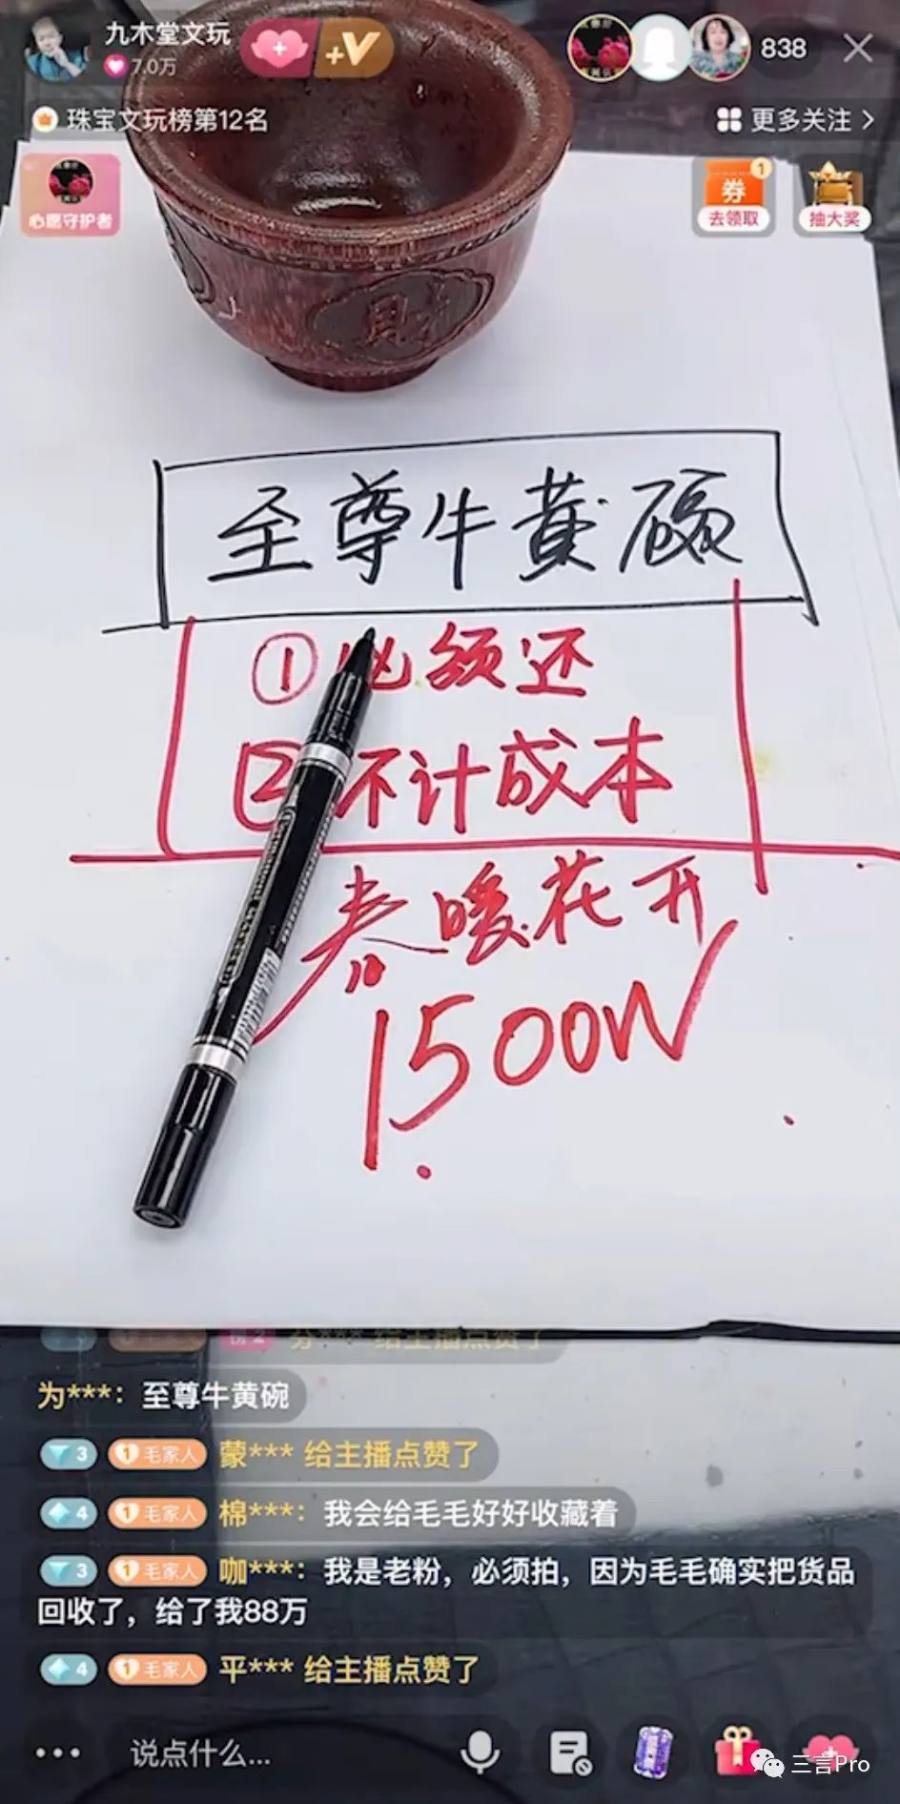 九木堂文玩
7.0万
+V
838
珠宝文玩榜第12名
更多关注
心愿守护者
券
1
去领取
抽大奖
財
至尊牛黄碗
①必须还
②不计成本
春暖花开
1500W
给主播点赞了
为***：至尊牛黄碗
3 1 毛家人 蒙*** 给主播点赞了
4 1 毛家人 棉***：我会给毛毛好好收藏着
3 1 毛家人 咖***：我是老粉，必须拍，因为毛毛确实把货品
回收了，给了我88万
4 1 毛家人 平*** 给主播点赞了
说点什么...
三言Pro